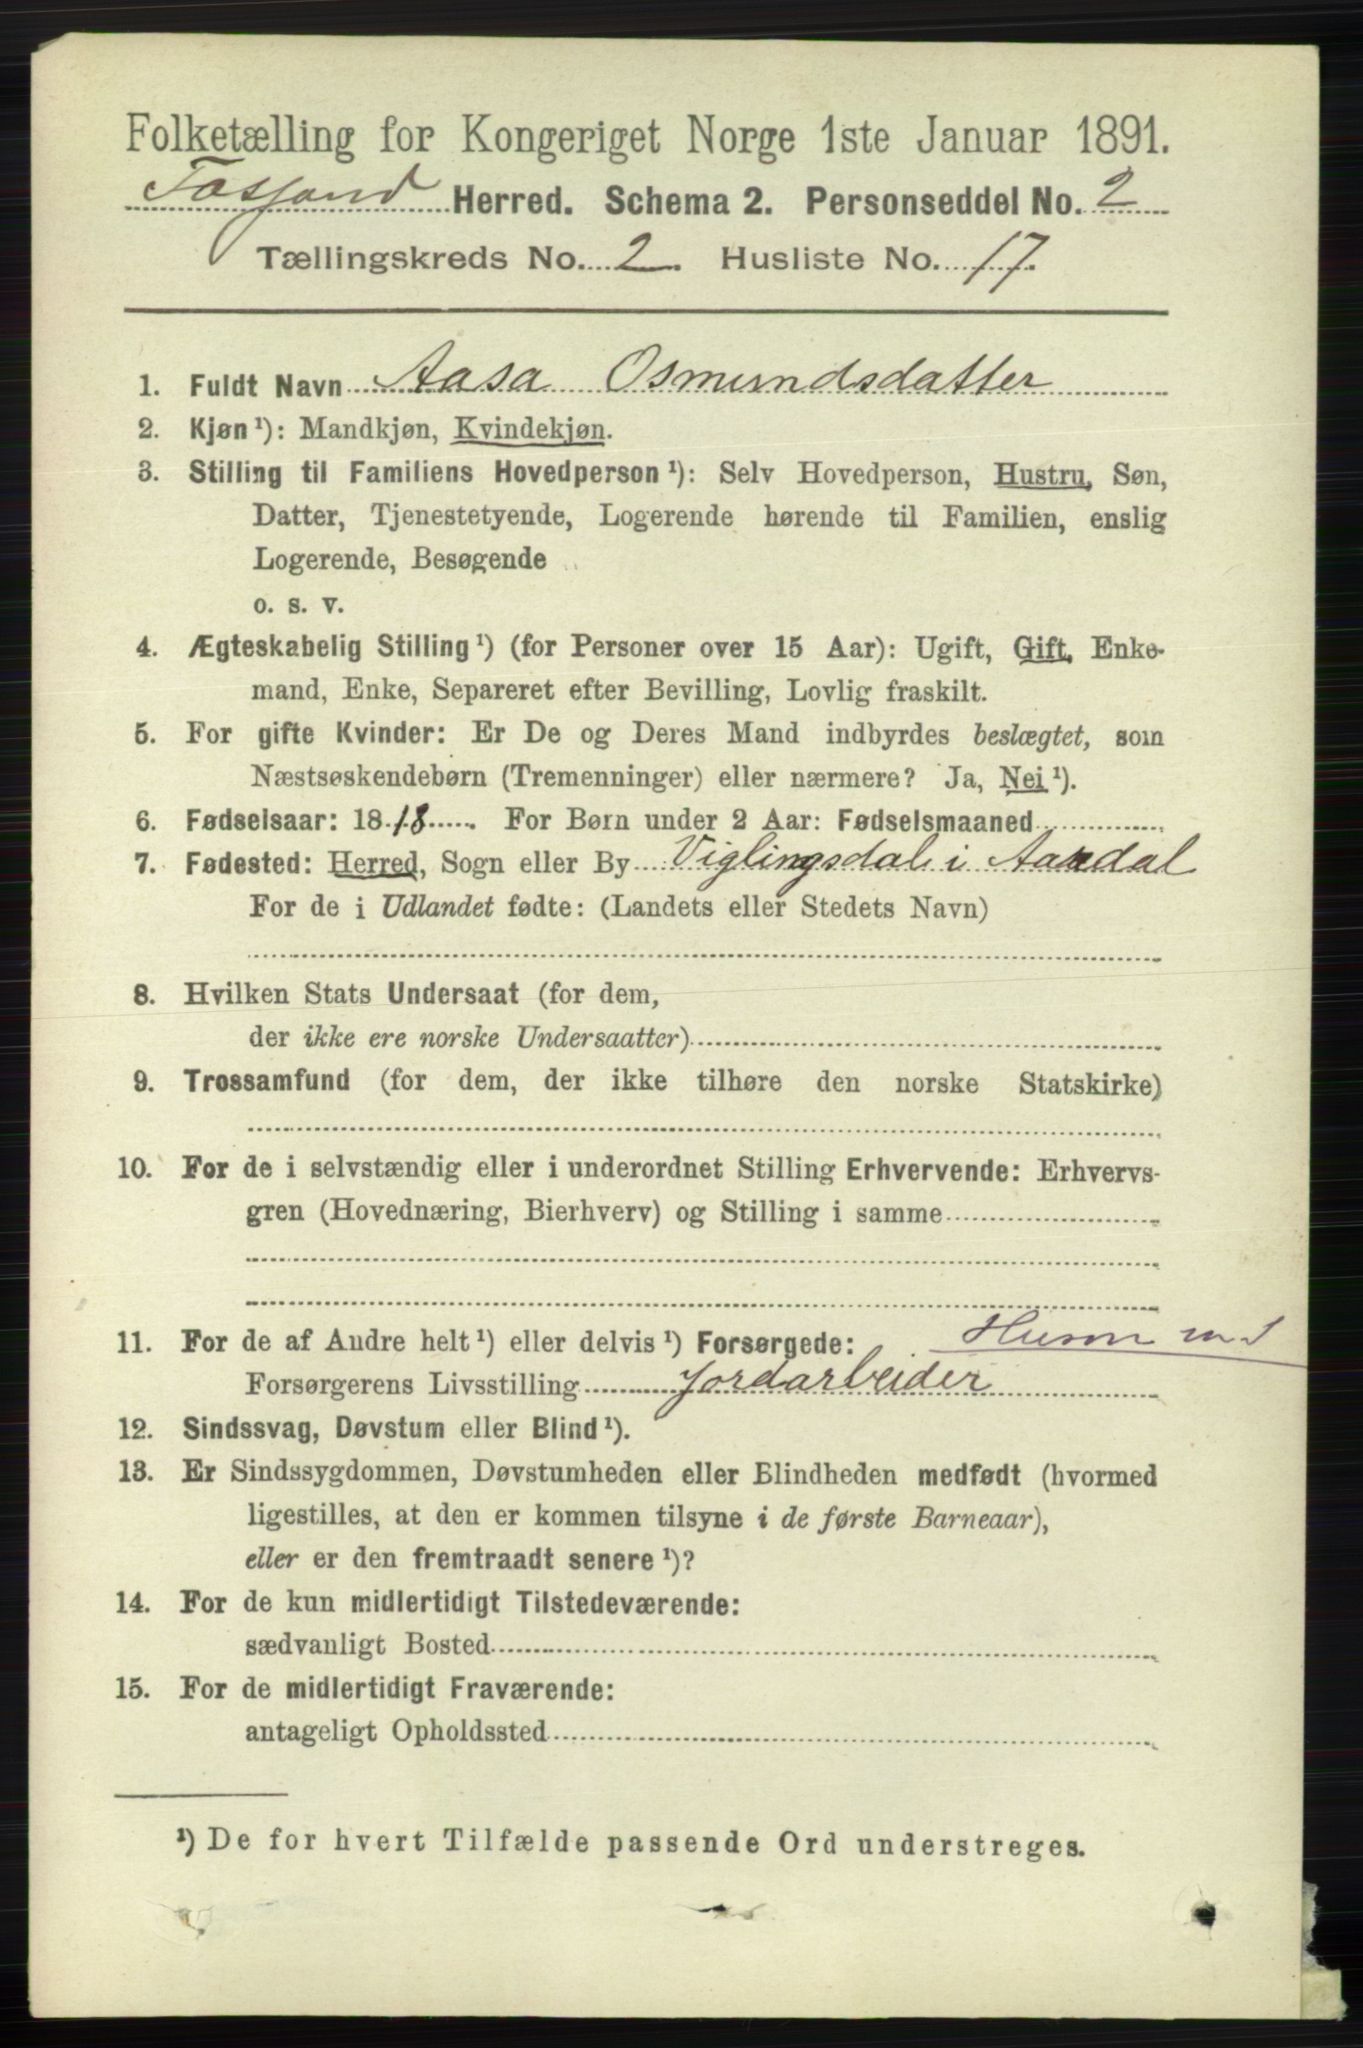 Folketælling for Kongeriget Norge 1ste Januar 1891.
Fossand Herred. Schema 2. Personseddel No. 2
Tællingskreds No. 2. Husliste No. 17.
1. Fuldt Navn Aasa Osmundsdatter
2. Kjøn ¹): Mandkjøn, Kvindekjøn.
3. Stilling til Familiens Hovedperson ¹): Selv Hovedperson, Hustru, Søn,
Datter, Tjenestetyende, Logerende hørende til Familien, enslig
Logerende, Besøgende
o. s. v.
4. Ægteskabelig Stilling ¹) (for Personer over 15 Aar): Ugift, Gift, Enke-
mand, Enke, Separeret efter Bevilling, Lovlig fraskilt.
5. For gifte Kvinder: Er De og Deres Mand indbyrdes beslægtet, som
Næstsøskendebørn (Tremenninger) eller nærmere? Ja, Nei ¹).
6. Fødselsaar: 1818. For Børn under 2 Aar: Fødselsmaaned
7. Fødested: Herred, Sogn eller By Viglingsdal i Aardal
For de i Udlandet fødte: (Landets eller Stedets Navn)
8. Hvilken Stats Undersaat (for dem,
der ikke ere norske Undersaatter)
9. Trossamfund (for dem, der ikke tilhøre den norske Statskirke)
10. For de i selvstændig eller i underordnet Stilling Erhvervende: Erhvervs-
gren (Hovednæring, Bierhverv) og Stilling i samme
11. For de af Andre helt ¹) eller delvis ¹) Forsørgede: Husm m J
Forsørgerens Livsstilling Jordarbeider
12. Sindssvag, Døvstum eller Blind ¹).
13. Er Sindssygdommen, Døvstumheden eller Blindheden medfødt (hvormed
ligestilles, at den er kommen tilsyne i de første Barneaar),
eller er den fremtraadt senere ¹)?
14. For de kun midlertidigt Tilstedeværende:
sædvanligt Bosted
15. For de midlertidigt Fraværende:
antageligt Opholdssted
¹) De for hvert Tilfælde passende Ord understreges.